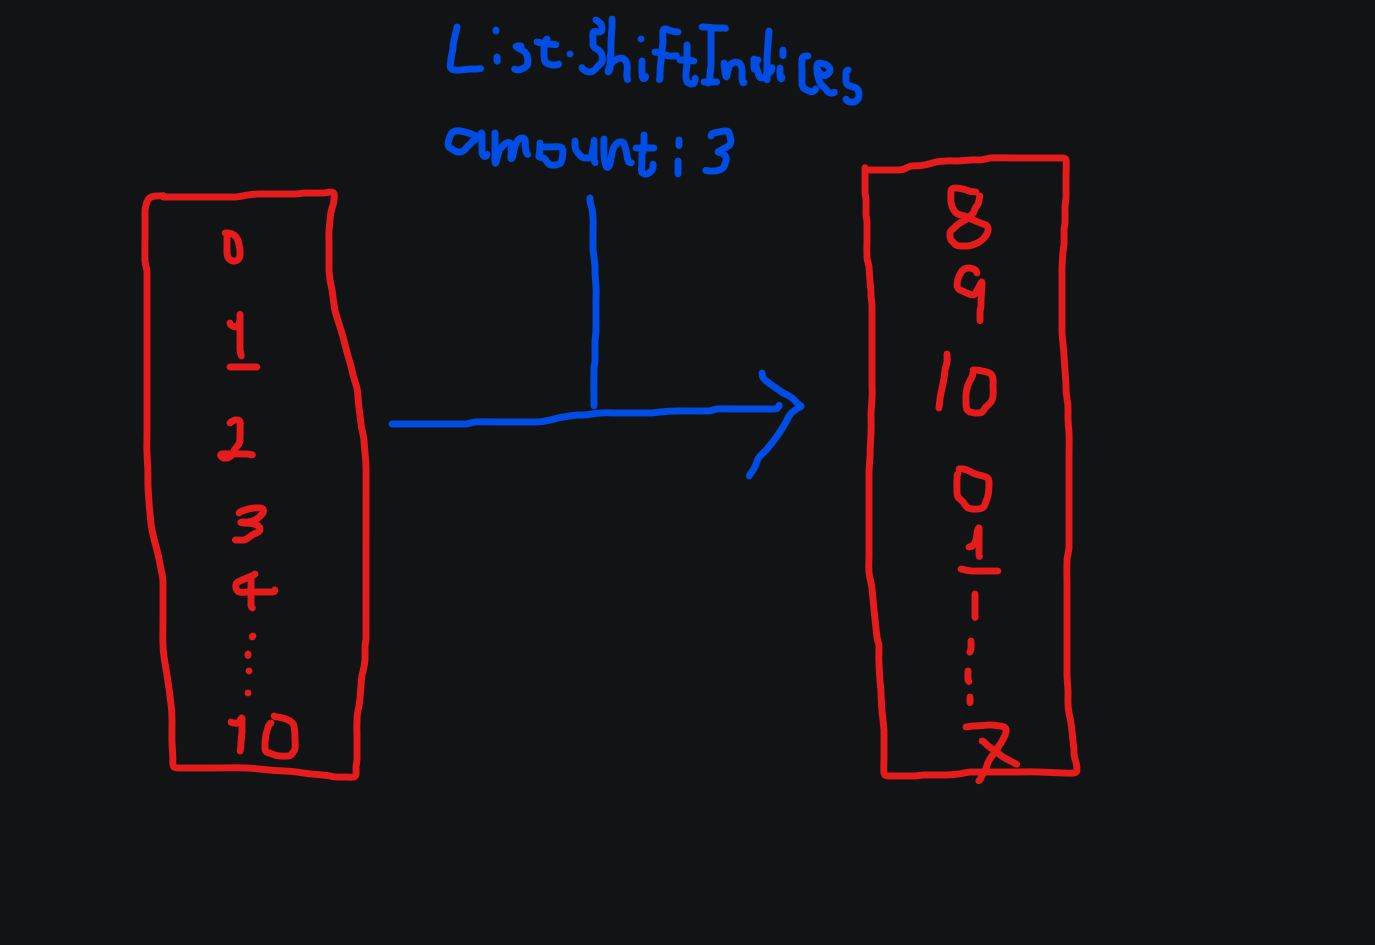 List.ShiftIndices
amount: 3
0
1
2
3
4
10
8
9
10
0
1
7